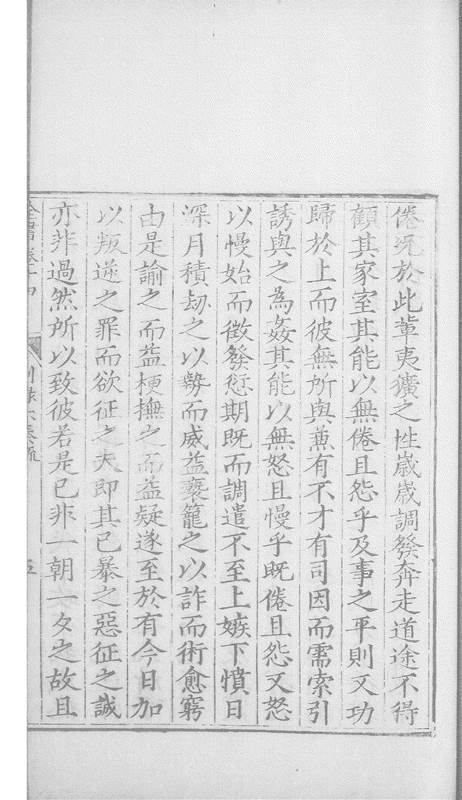 倦况於此軰夷獷之性嵗嵗調發奔走道途不得
顧其家室其能以無倦且怨乎及事之平則又功
歸於上而彼無所與兼有不才有司因而需索引
誘與之為姦其能以無怒且慢乎既倦且怨又怒
以慢始而徴發愆期既而調遣不至上嫉下憤日
深月積刼之以勢而威益䙝籠之以詐而術愈窮
由是諭之而益梗撫之而益疑遂至於有今日加
以叛逆之罪而欲征之夫即其已暴之惡征之誠
亦非過然所以致彼若是已非一朝一夕之故且
全書卷十四
別録六奏疏
五